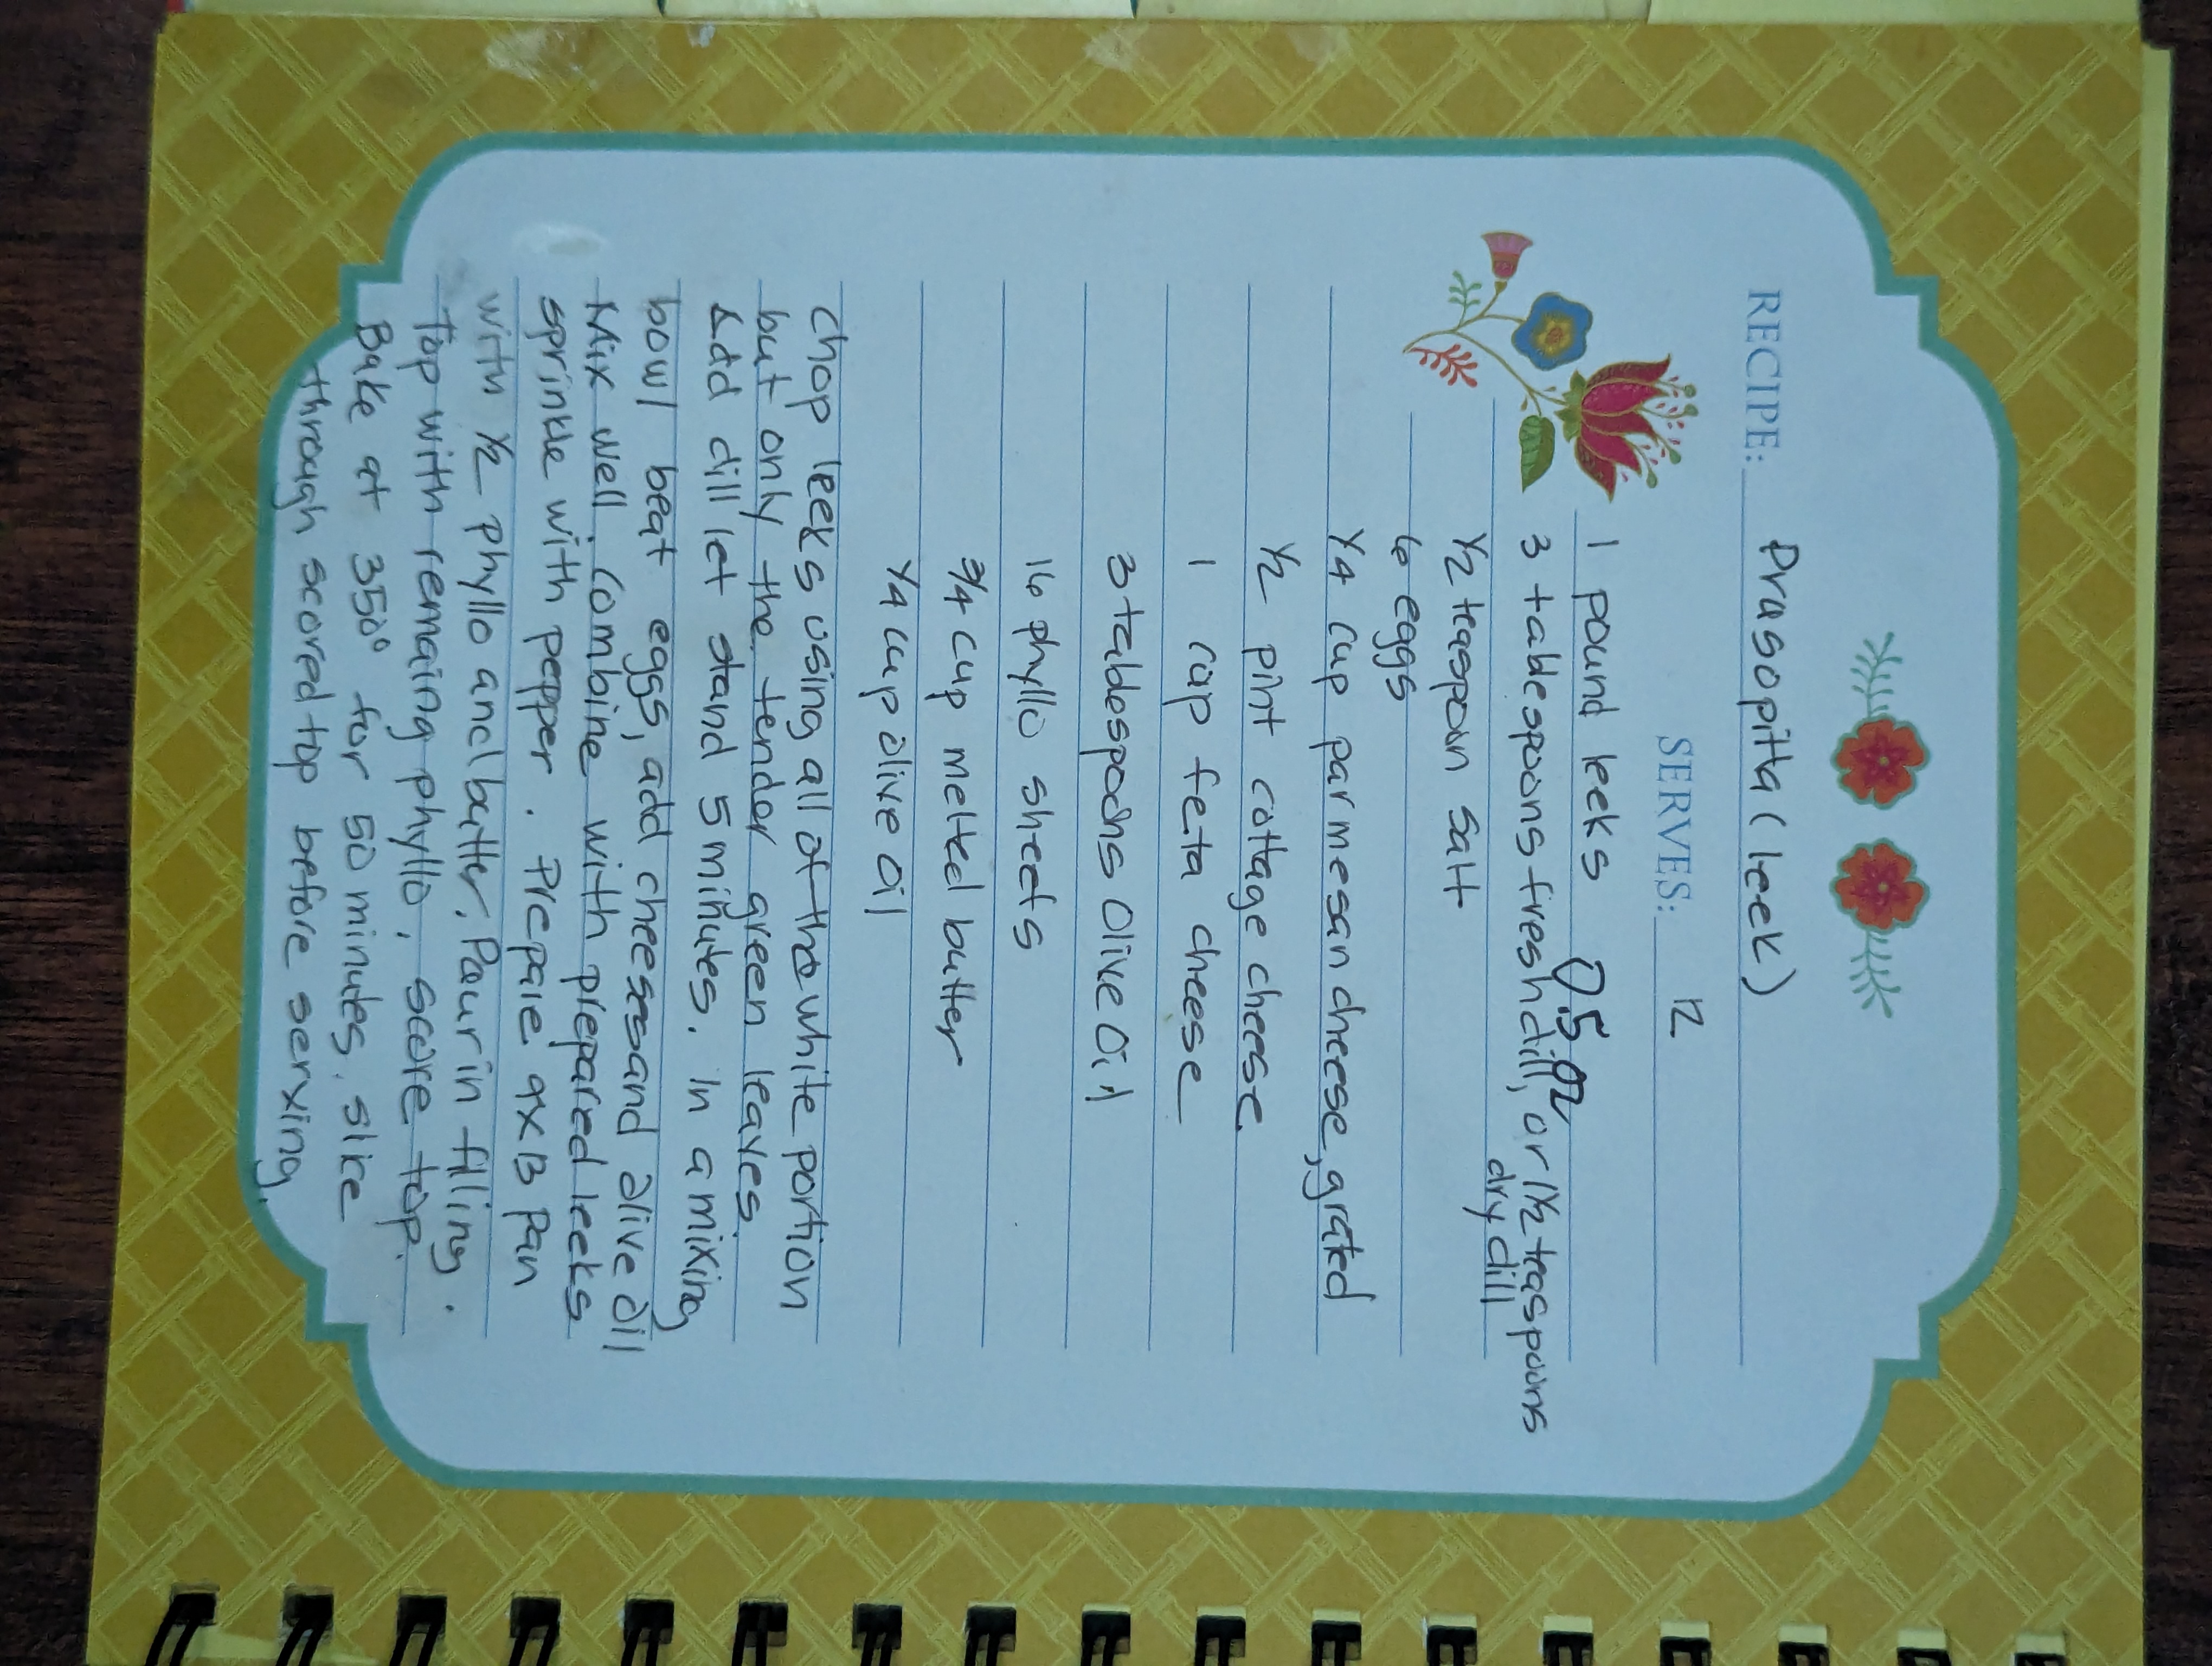 RECIPE: Prasopitta (leek)
SERVES: 12
1 pound leeks 0.5 oz
3 tablespoons fresh dill, or 1½ teaspoons
dry dill
½ teaspoon salt
6 eggs
¼ cup parmesan cheese, grated
½ pint cottage cheese
1 cup feta cheese
3 tabdespoons Olive Oil
16 phyllo sheets
¾ cup melted butter
¼ cup olive oil
Chop leeks using all of the white portion
but only the tender green leaves.
Add dill let stand 5 minutes. In a mixing
bowl beat eggs, add cheeses and olive oil
Mix well. Combine with prepared leeks
sprinkle with pepper. Prepare 9x13 pan
with ½ phyllo and butter. Pour in filling.
Top with remaing phyllo, score top.
Bake at 350° for 50 minutes, slice
through scored top before serving.